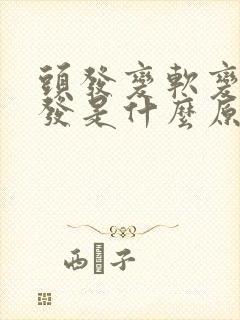 頭發變軟變
發是什麼原
西 子